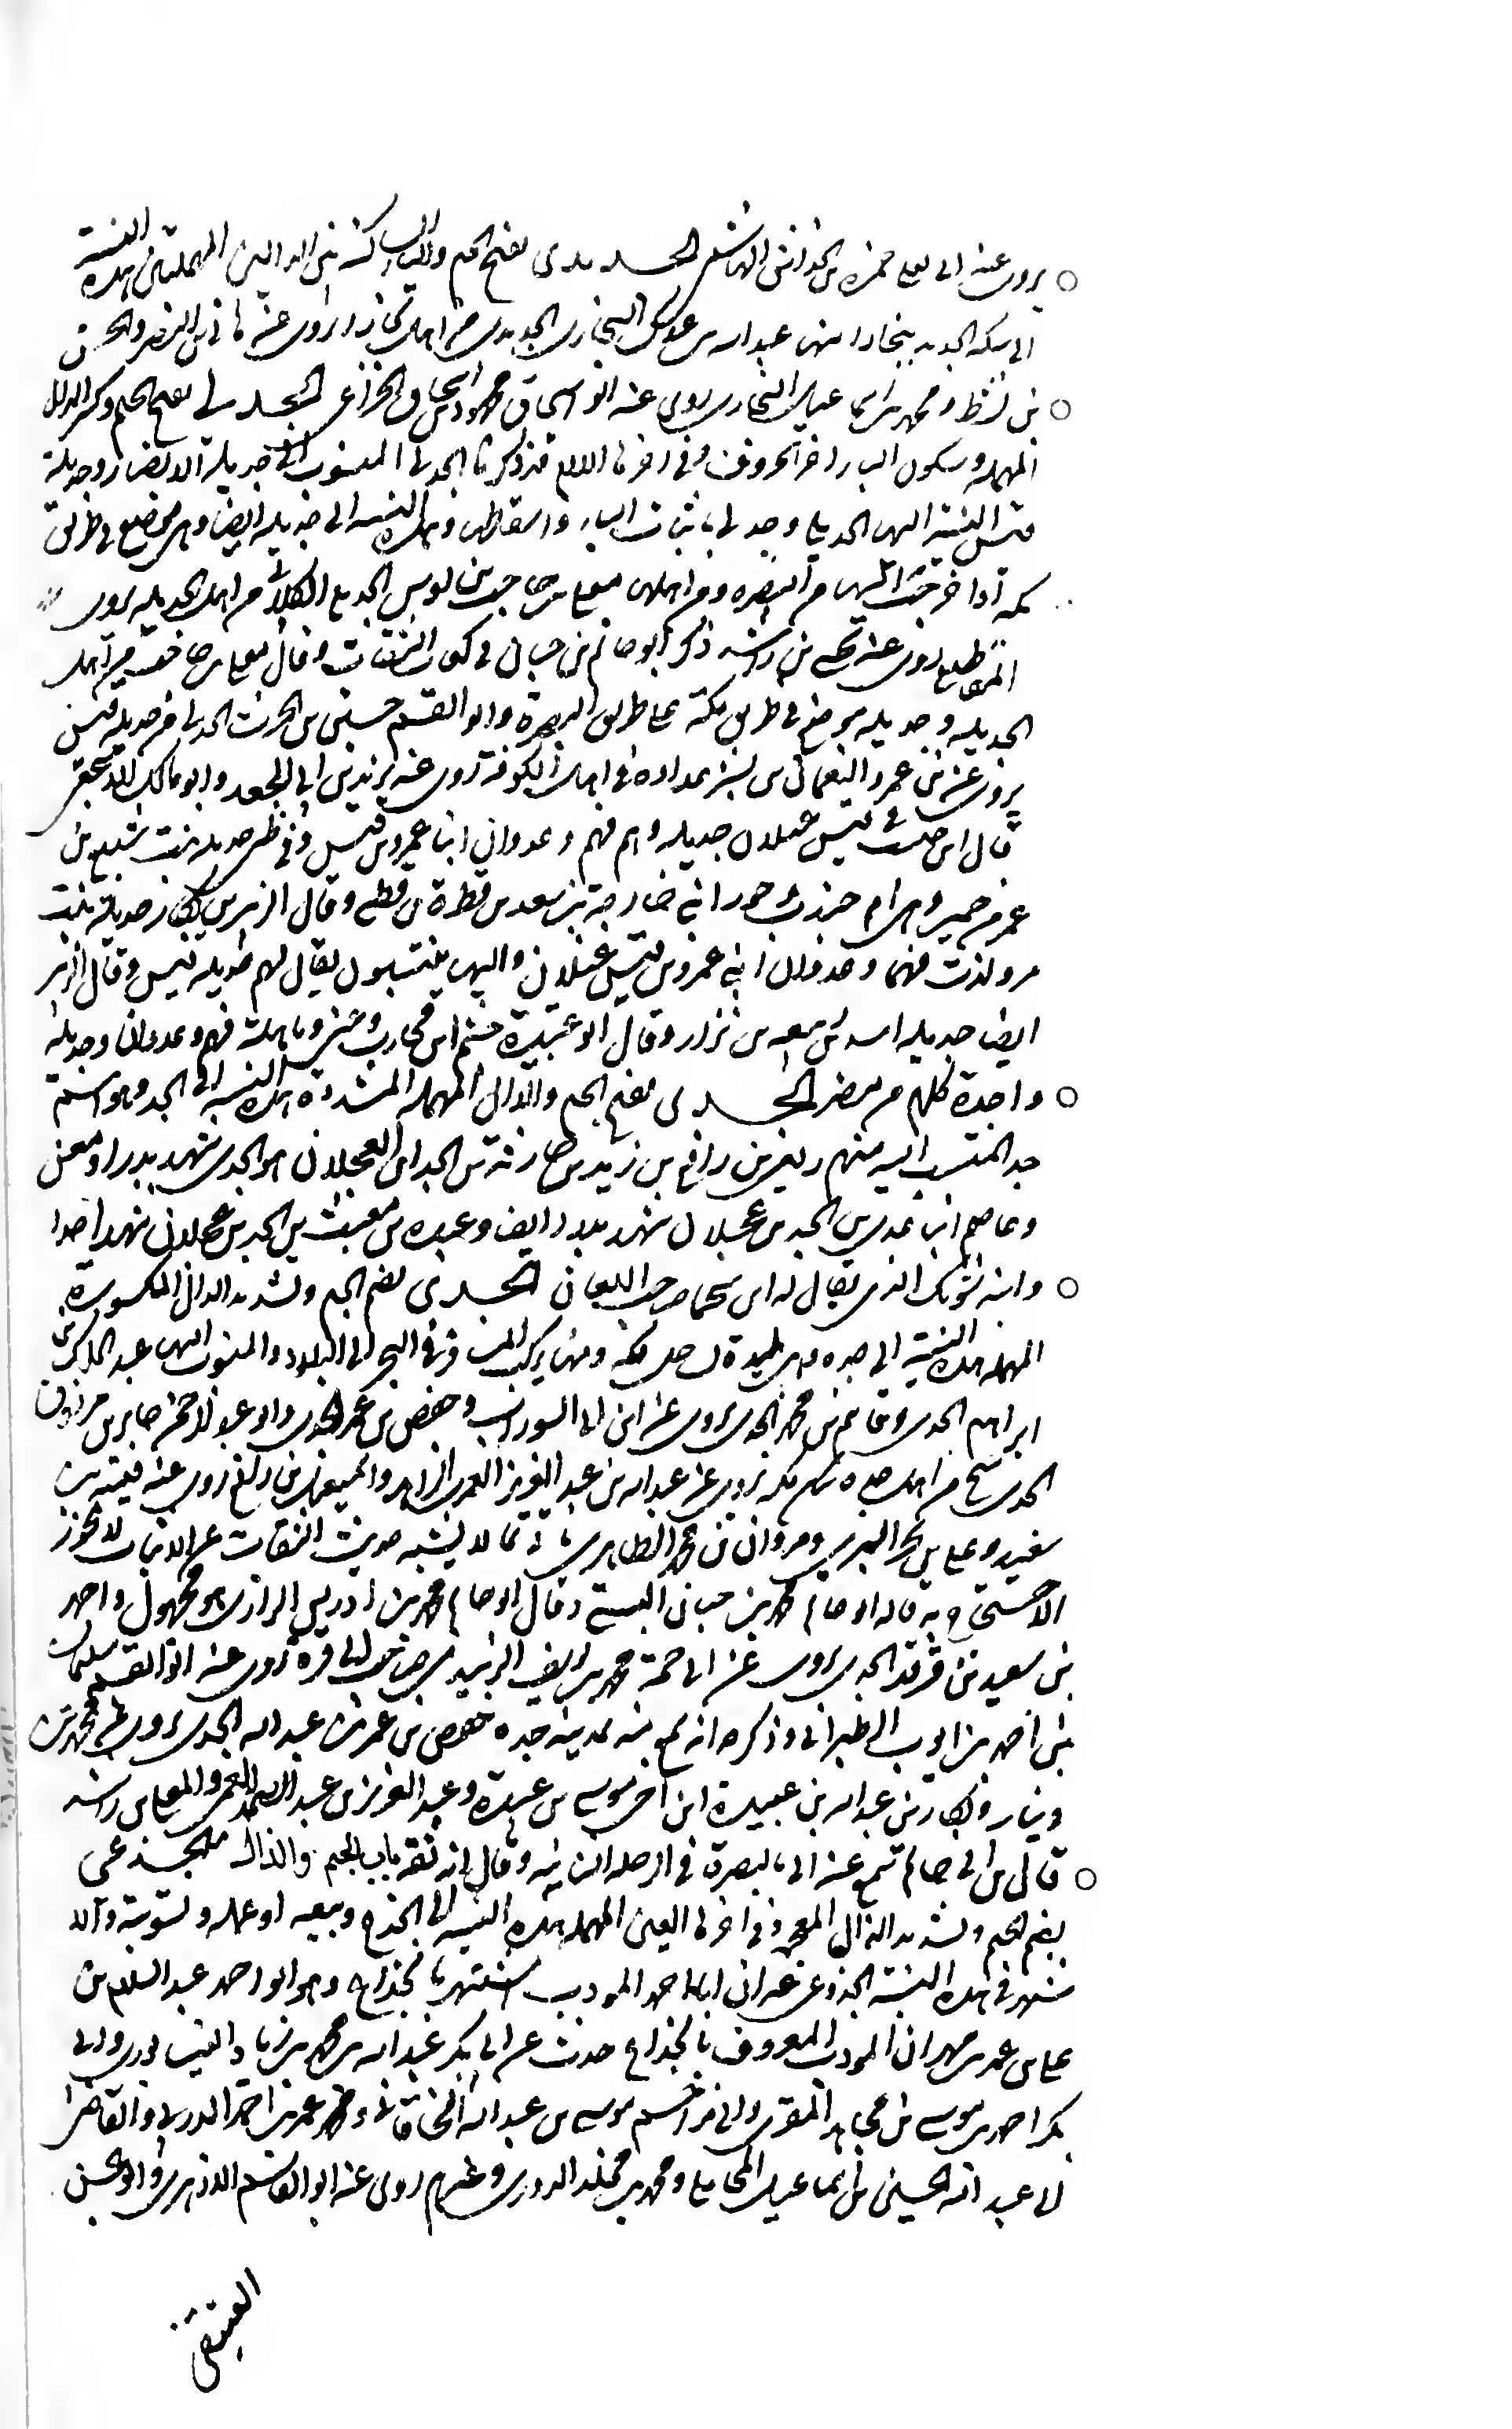 يروى عنه ابو يعلى حمزة بن الهاشمى الجديدى بفتح الجيم والياء الساكنة بين الدالين المهملتين هذه النسبة
الى سكة الجديد ببخارا منها عبد الله بن عبدك البخارى الجديدى من اهل بخارا روى عنه هانى بن النضر والحسن
بن ومحمد بن اسماعيل البخارى روى عنه ابو اسحاق محمود بن اسحاق الخزاعى الجديلى بفتح الجيم وكسر الدال
المهملة وسكون الياء اخر الحروف وفى اخرها اللام قد ذكرنا الجدلى المنسوب الى جديلة الانصار وجديلة
قيس النسبة اليها الجديلى وجدلى باثبات الياء واسقاطها وهذه النسبة الى جديلة ايضا وهى موضع فى طريق
مكة اذا خرجت اليها من البصرة ومن اهلها معلى بن حاجب بن اوس الجديلى الكلابى من اهل الجديلة يروى
المقاطيع روى عنه يحيى بن راشد ذكره ابو حاتم بن حبان فى كتاب الثقات وقال معلى بن حاجب من اهل
الجديلة وجديلة موضع فى طريق مكة على طريق البصرة وابو القسم حسين بن الحرث الجدلى من جديلة قيس
يروى عن بن عمر والنعمان بن بشير عداده فى اهل الكوفة روى عنه يزيد بن ابى الجعد وابو مالك الاشجعى
قال ابن حبيب فى قيس عيلان جديلة وهم فهم وعدوان ابنا عمرو بن قيس وفى طى جديلة بنت سبيع بن
عمرو من حمير وهى ام جندب وحور ابنى خارجة بن سعد بن فطرة بن طى وقال الزبير بن بكار جديلة بنت
مر ولدت فهما وعدوان ابنى عمرو بن قيس عيلان واليها ينتسبون يقال لهم جديلة قيس وقال الزبير
ايضا جديلة اسد بن ربيعة بن نزار وقال ابو عبيدة محارب وغنى وباهلة فهم وعدوان وجديلة
واحدة كلهم من مضر الجدى بفتح الجيم والدال المهملة المشددة هذه النسبة الى الجد وهو اسم
جد المنتسب اليه منهم ربعى بن رافع بن زيد بن حارثة بن الجد بن العجلان هو الجدى شهد بدرا ومعن
وعاصم ابنا عدى بن الجد بن عجلان شهدا بدرا ايضا وعبدة بن مغيث بن الجد بن عجلان شهد احدا
وابنه شريك الذى يقال له ابن سحما صاحب اللعان الجدى بضم الجيم وتشديد الدال المكسورة
المهملة هذه النسبة الى جدة وهى بليدة بساحل مكة ومنها يركب المسافر فى البحر الى البلاد والمنسوب اليها عبد الملك بن
ابراهيم الجدى وقاسم بن محمد الجدى يروى عن ابن ابى الشوارب وحفص بن عمر الجدى وابو عبد الرحمن جابر بن مرزوق
الجدى شيخ من اهل جدة سكن مكة يروى عن عبد الله بن عبد العزيز العمرى الزاهد روى عنه قتيبة بن
سعيد وعلى بن بحر البرى ومروان بن محمد الطاطرى ياتى بما لا يشبه حديث الثقات عن الاثبات لا يجوز
الاحتجاج به قاله ابو حاتم محمد بن حبان البستى وقال ابو حاتم محمد بن ادريس الرازى هو مجهول واحمد
بن سعيد بن فرقد الجدى يروى عن ابى حمة محمد بن يوسف الزبيدى صاحب ابى قرة روى عنه ابو القسم سليمان
بن احمد بن ايوب الطبرانى وذكر انه سمع منه بمدينة جدة حفص بن عمر بن عبد الله الجدى يروى عن محمد بن
دينار وبكار بن عبد الله بن عبيدة ابن اخى موسى بن عبيدة وعبد العزيز بن عبد الصمد العمى والمعلى بن راشد
قال بن ابى حاتم سمع عنه ابى بالبصرة فى الرحلة الثانية وقال انه ثقة باب الجيم والذال الجذعى
بضم الجيم وتشديد الذال المعجمة وفى اخرها العين المهملة هذه النسبة الى الجذع وبيعه او عمله وتسويته والا
شهر فى هذه النسبة الجذوعى غير ان ابا احمد المودب اشتهر بالجذاع وهو ابو احمد عبد السلم بن
على بن عمر بن مهران المودب المعروف بالجذاع حدث عن ابى بكر عبد الله بن محمد بن زياد النيسابورى وابى
بكر احمد بن موسى بن مجاهد المقرى وابى مزاحم موسى بن عبيد الله الخاقانى وعمر بن احمد الدربى والقاضى
ابى عبد الله الحسين بن اسماعيل المحاملى ومحمد بن مخلد الدورى وغيرهم روى عنه ابو القاسم الازهرى وابو الحسن
العتيقى